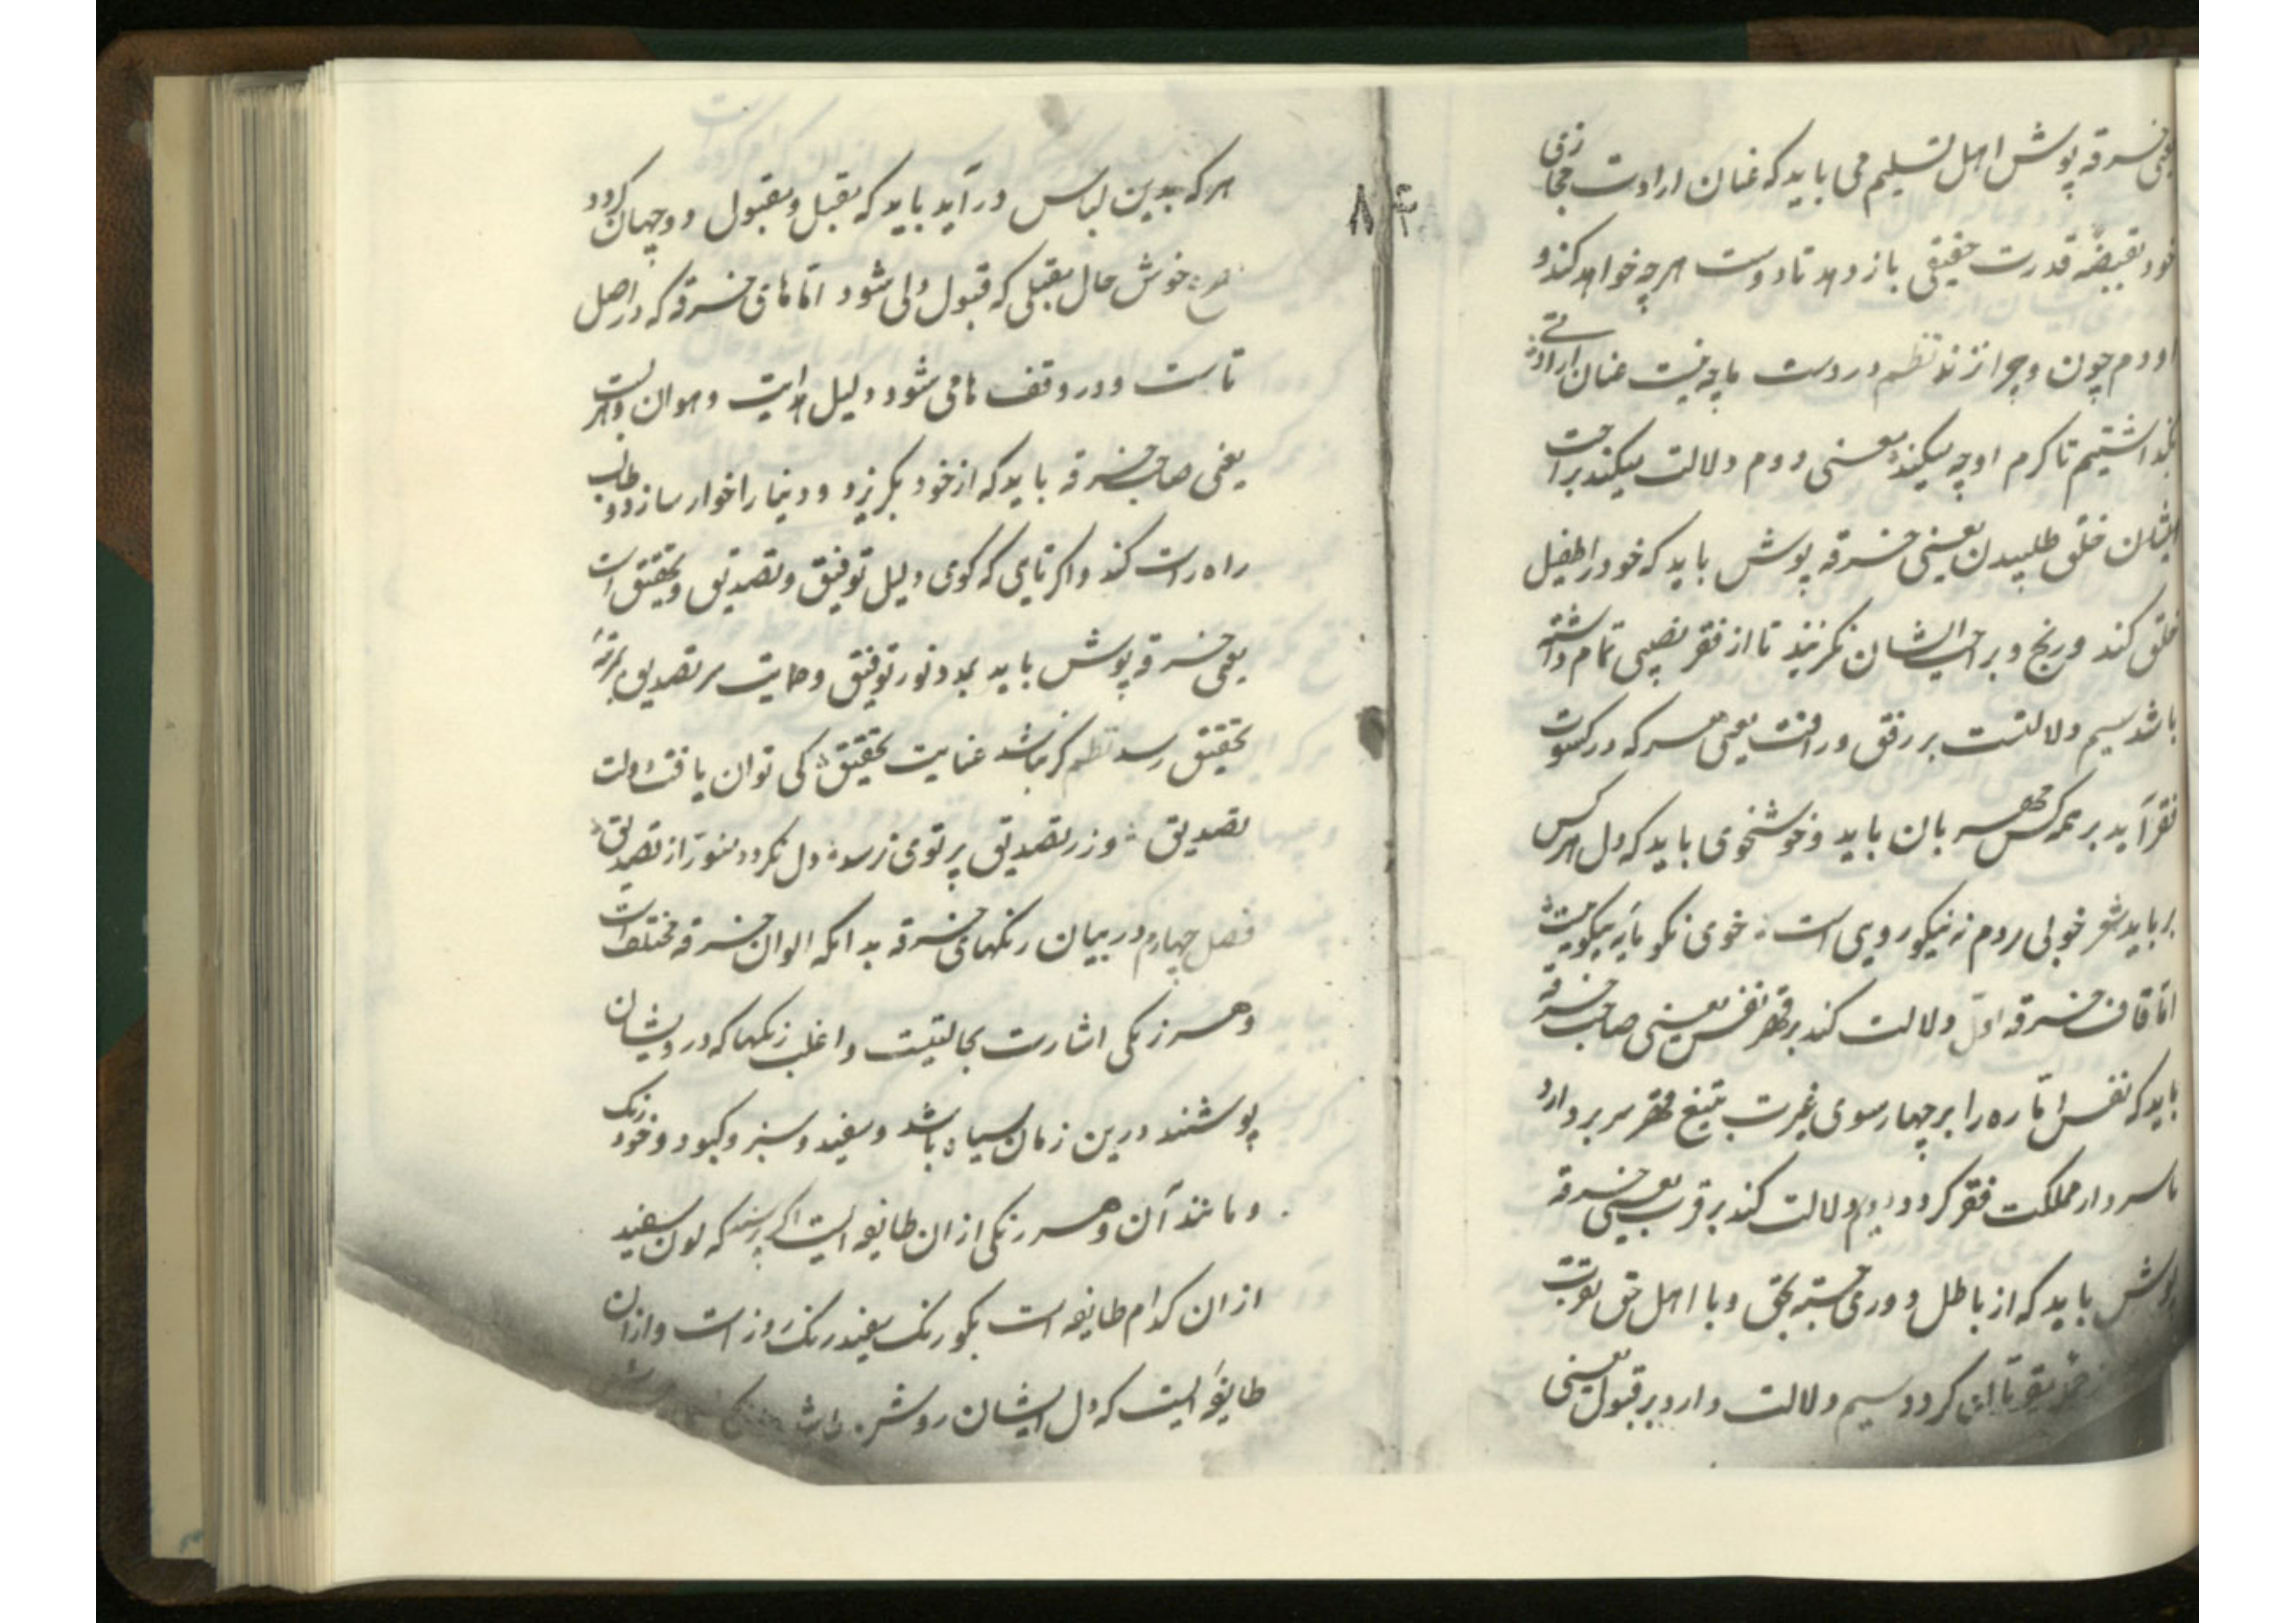 یعنی خرقه پوش اهل تسلیم می باید که عنان ارادت مجازی
خود بقبضه قدرت حقیقی بازدهد تا دوست هرچه خواهد کند و
او دم چون و چرا نزند نظم در دست ما چو نیست عنان ارادتی
بگذاشتیم تا کرم او چه میکند معنی دوم دلالت میکند بر راحت
ایشان خلق طلبیدن یعنی خرقه پوش باید که خود را طفیل
خلق کند و رنج و بر راحت ایشان نگزیند تا از فقر نصیبی تمام داشته
باشد سیم دلالتست بر رفق و رافت یعنی هر که در کسوت
فقر آید بر همه کس مهربان باید و خوشخوی باید که دل هر کس
برباید شعر خوبی مردم نه نیکو رویی است خوی نکو مایه نیکوییست
اما قاف خرقه اول دلالت کند بر قهر نفس یعنی صاحب خرقه
باید که نفس اماره را بر چهار سوی غیرت بتیغ قهر سر بردارد
تا سردار مملکت فقر گردد دوم دلالت کند بر قرب یعنی خرقه
پوش باید که از باطل دوری جسته بحق و با اهل حق تقرب
گردد سیم دلالت دارد بر قبول یعنی
۸۴
هر که بدین لباس درآید باید که مقبل و مقبول دو جهان گردد
ع خوش حال مقبلی که قبول دلی شود اما های خرقه که در اصل
تاست و در وقف ها می شود دلیل هدایت و هوان و هربست
یعنی صاحب خرقه باید که از خود بگریزد و دنیا را خوار سازد و طلب
راه راست کند و اگر تای که گوی دلیل توفیق و تصدیق و تحقیق است
یعنی خرقه پوش باید بمدد نور توفیق و حمایت سر تصدیق بمرتبه
تحقیق رسد نظم گر نباشد عنایت تحقیق کی توان یافت دولت
تصدیق وز تصدیق پرتوی نرسد دل نگردد منور از تصدیق
فصل چهارم در بیان رنگهای خرقه بدانکه الوان خرقه مختلف است
و هر رنگی اشارت بحالتیست و اغلب رنگها که درویشان
پوشند درین زمان سیاه باشد و سفید و سبز و کبود و خود رنگ
و مانند آن و هر رنگی از آن طایفه ایست اگر پرسند که لون سفید
از آن کدام طایفه است بگو رنگ سفید رنگ روز است و از آن
طایفه ایست که دل ایشان روشن